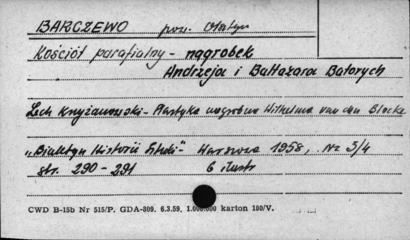 BARCZEWO pow. Olsztyn
Kościół parafialny - nagrobek
Andrzeja i Baltazara Batorych
Lech Krzyżanowski - Plastyka nagrobna Wilhelma van den Blocke
„Biuletyn Historii Sztuki" - Warszawa 1958, Nr 3/4
str. 290 - 291 6 ilustr
CWD B-15b Nr 515/P. GDA-809. 6.3.59. 1.000.000 karton 180/V.